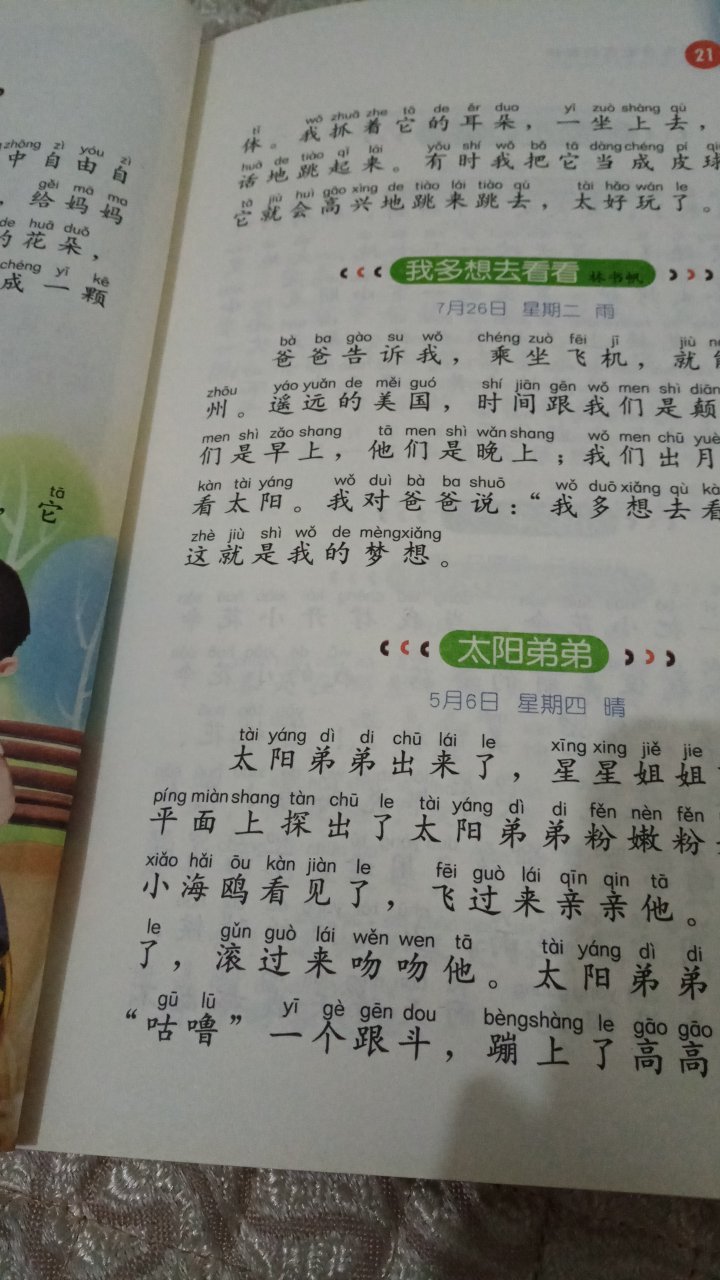 zhōng zì yóu zì
中自由自
gěi mā ma
，给妈妈
de huā duǒ
的花朵，
chéng yī kē
成一颗
tā
，它
21
tǐ wǒ zhuā zhe tā de ěr duo yí zuò shàng qù
体。我抓着它的耳朵，一坐上去，
huà de tiào qǐ lái yǒu shí wǒ bǎ tā dàng chéng pí qiú
话地跳起来。有时我把它当成皮球
tā jiù huì gāo xìng de tiào lái tiào qù tài hǎo wán le
它就会高兴地跳来跳去，太好玩了。
我多想去看看 林书帆
7月26日 星期二 雨
bà ba gào su wǒ chéng zuò fēi jī jiù
爸爸告诉我，乘坐飞机，就
zhōu yáo yuǎn de měi guó shí jiān gēn wǒ men shì diān
州。遥远的美国，时间跟我们是颠
men shì zǎo shang tā men shì wǎn shang wǒ men chū yuè
们是早上，他们是晚上；我们出月
kàn tài yáng wǒ duì bà ba shuō wǒ duō xiǎng qù kàn
看太阳。我对爸爸说：“我多想去看
zhè jiù shì wǒ de mèng xiǎng
这就是我的梦想。
太阳弟弟
5月6日 星期四 晴
tài yáng dì di chū lái le xīng xing jiě jie
太阳弟弟出来了，星星姐姐
píng miàn shang tàn chū le tài yáng dì di fěn nèn fěn
平面上探出了太阳弟弟粉嫩粉
xiǎo hǎi ōu kàn jiàn le fēi guò lái qīn qin tā
小海鸥看见了，飞过来亲亲他。
le gǔn guò lái wěn wen tā tài yáng dì di
了，滚过来吻吻他。太阳弟弟
gū lū yī gè gēn dou bèng shàng le gāo gāo
“咕噜”一个跟斗，蹦上了高高